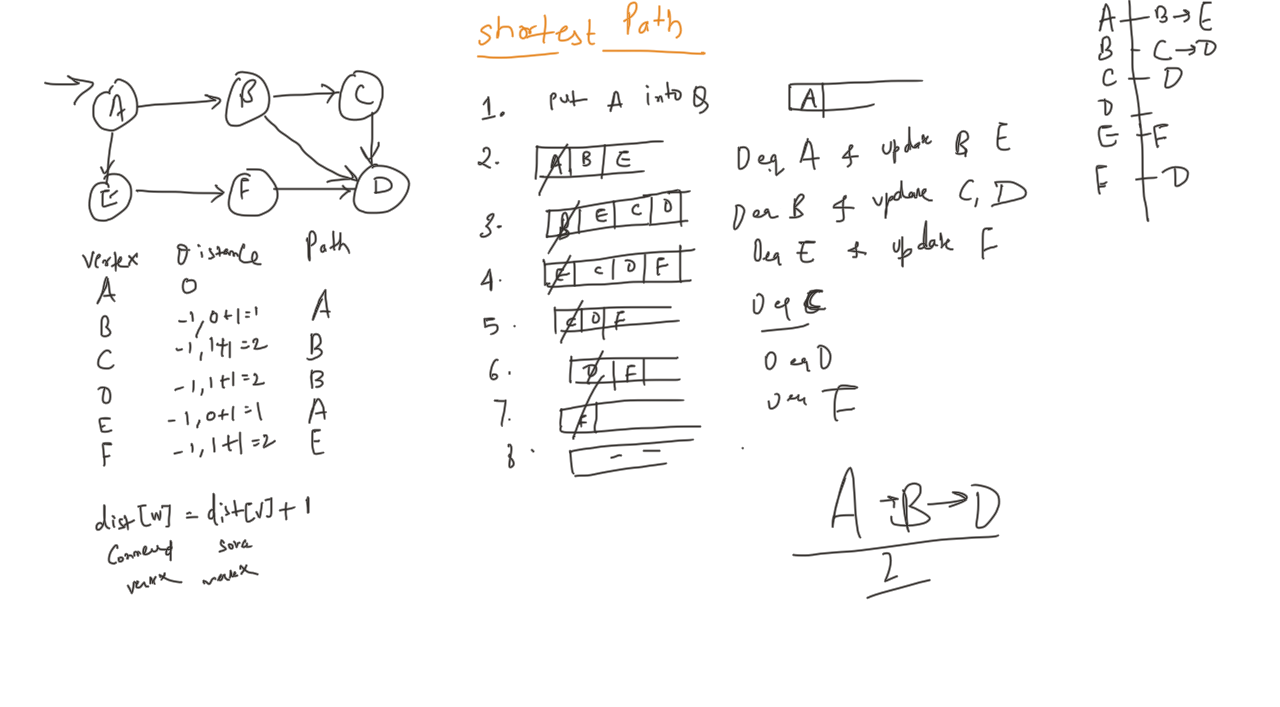 shortest Path
A B C
E F D
vertex Distance Path
A 0
B -1, 0+1=1 A
C -1, 1+1=2 B
D -1, 1+1=2 B
E -1, 0+1=1 A
F -1, 1+1=2 E
dist[w] = dist[v] + 1
vertex
1. Put A into Q A
2. A B E Deq A & update B, E
3. B E C D Deq B & update C, D
4. E C D F Deq E & update F
5. C D F Deq C
6. D F Deq D
7. F Deq F
8. - -
A → B → D
2
A B → E
B C → D
C D
D
E F
F D